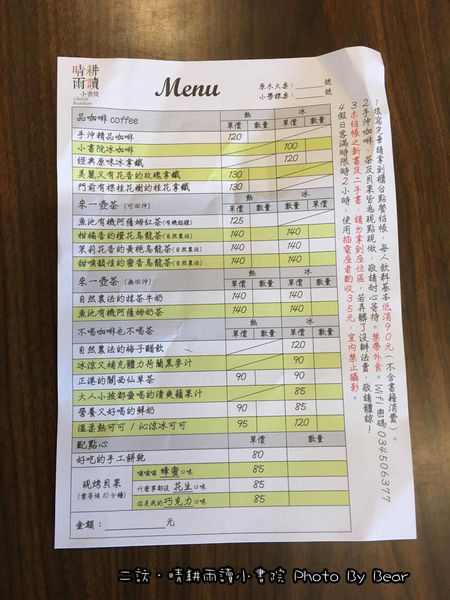 晴耕
雨讀
小書院
Lifestyle
Bookstore
Menu
原木大桌：______號
小學課桌：______號
品咖啡 coffee 熱 冰
單價 數量 單價 數量
手沖精品咖啡 120
小書院冰咖啡 100
經典原味冰拿鐵 120
美麗又有花香的玫瑰拿鐵 130
門前有棵桂花樹的桂花拿鐵 130
來一壺茶 (可回沖) 熱 冰
單價 數量 單價 數量
魚池有機阿薩姆紅茶(有機認證) 125
柑橘香的橙花烏龍茶(自然農法) 140 140
茉莉花香的黃梔烏龍茶(自然農法) 140 140
甜喉韻佳的蜜香烏龍茶(自然農法) 140 140
來一壺茶 (無回沖) 熱 冰
單價 數量 單價 數量
自然農法的抹茶牛奶 140 140
魚池有機阿薩姆奶茶 140 140
不喝咖啡也不喝茶 熱 冰
單價 數量 單價 數量
自然農法的梅子醋飲 120
冰涼又補充體力荷蘭黑麥汁 90
正港的關西仙草茶 90 90
大人小孩都愛喝的清爽蘋果汁 85
營養又好喝的鮮奶 90 85
溫柔熱可可 / 沁涼冰可可 95 120
配點心 單價 數量
好吃的手工餅乾 80
現烤貝果
(需等候10分鐘)
嗡嗡嗡嗡 蜂蜜口味 85
什麼事都沒 花生口味 85
你是我的巧克力口味 85
金額：__________元
1 填寫完畢請拿到櫃台點餐結帳，每人飲料基本低消90元(不含書籍消費)。
2 手沖咖啡、茶及貝果皆為現點現做，敬請耐心等待。禁帶外食。Wifi 密碼 034506377
3 未結帳之新書及二手書，請勿拿到座位區，若弄髒了沒辦法賣，敬請體諒！
4 假日客滿時限時2小時，使用插電座者酌收35元，室內禁止攝影。
二訪．晴耕雨讀小書院 Photo By Bear